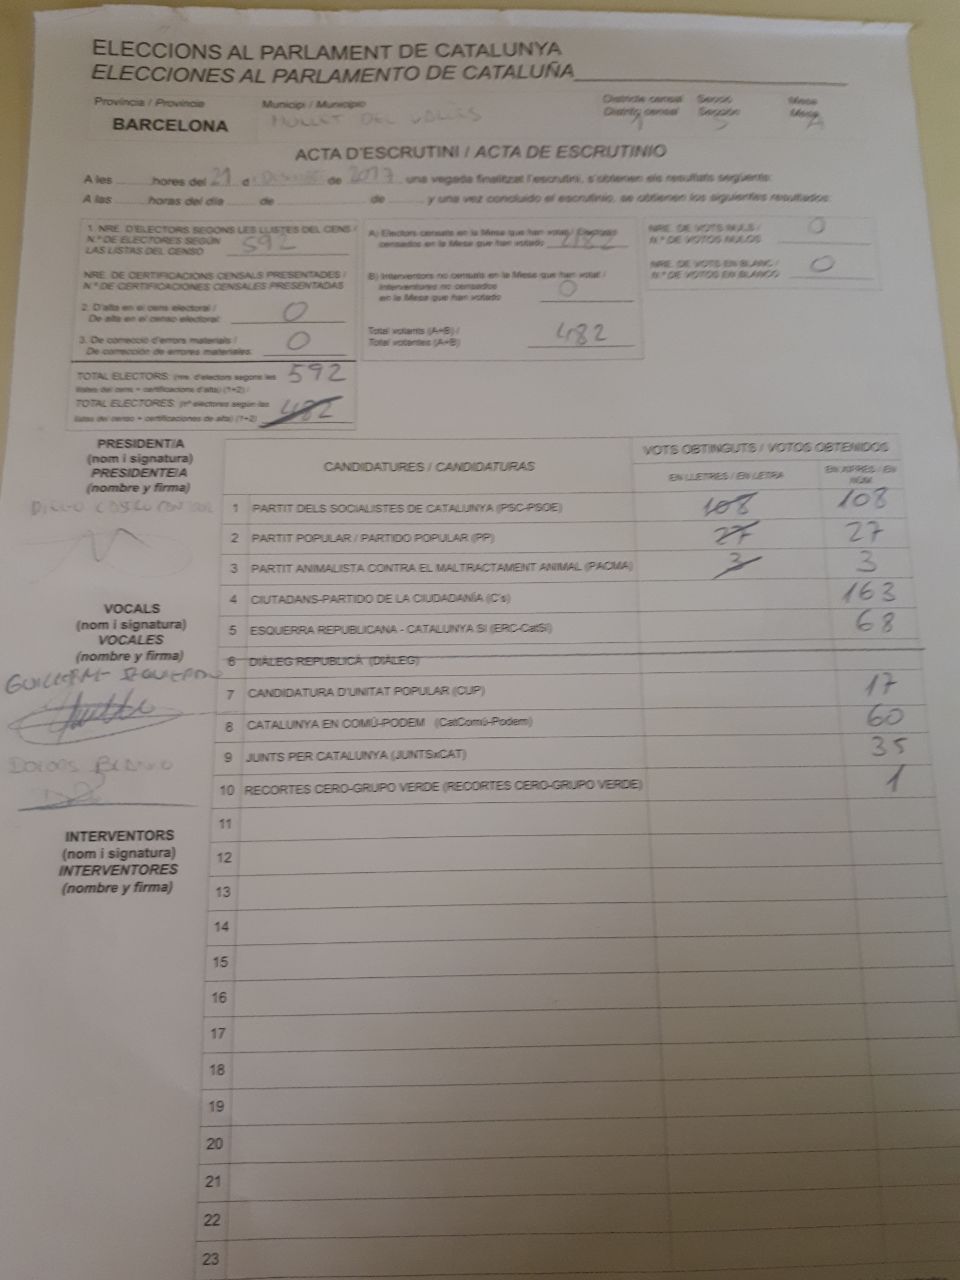 ELECCIONS AL PARLAMENT DE CATALUNYA
ELECCIONES AL PARLAMENTO DE CATALUÑA
Província / Provincia
Municipi / Municipio
Districte censal
Distrito censal
1
Secció
Sección
Mesa
Mesa
A
BARCELONA
MOLLET DEL VALLÈS
ACTA D'ESCRUTINI / ACTA DE ESCRUTINIO
A les ........ hores del 21 d ........ de 2017 una vegada finalitzat l'escrutini, s'obtenen els resultats següents:
A las ........ horas del día ........ de ........ de ........ y una vez concluido el escrutinio, se obtienen los siguientes resultados:
1. NRE. D'ELECTORS SEGONS LES LLISTES DEL CENS /
N.º DE ELECTORES SEGÚN
LAS LISTAS DEL CENSO
592
NRE. DE CERTIFICACIONS CENSALS PRESENTADES /
N.º DE CERTIFICACIONES CENSALES PRESENTADAS
2. D'alta en el cens electoral /
De alta en el censo electoral:
0
3. De correcció d'errors materials /
De corrección de errores materiales:
0
TOTAL ELECTORS: (nre. d'electors segons les
llistes del cens + certificacions d'alta) (1+2) /
592
TOTAL ELECTORES: (nº electores según las
listas del censo + certificaciones de alta) (1+2)
482
A) Electors censats en la Mesa que han votat / Electores
censados en la Mesa que han votado
482
B) Interventors no censats en la Mesa que han votat /
Interventores no censados
en la Mesa que han votado
0
Total votants (A+B) /
Total votantes (A+B)
482
NRE. DE VOTS NULS /
N.º DE VOTOS NULOS
0
NRE. DE VOTS EN BLANC /
N.º DE VOTOS EN BLANCO
0
PRESIDENT/A
(nom i signatura)
PRESIDENTE/A
(nombre y firma)
VOCALS
(nom i signatura)
VOCALES
(nombre y firma)
GUILLEM
DOLORS BLANCO
INTERVENTORS
(nom i signatura)
INTERVENTORES
(nombre y firma)
CANDIDATURES / CANDIDATURAS
VOTS OBTINGUTS / VOTOS OBTENIDOS
EN LLETRES / EN LETRA
EN XIFRES / EN NÚM.
1 PARTIT DELS SOCIALISTES DE CATALUNYA (PSC-PSOE) 108 108
2 PARTIT POPULAR / PARTIDO POPULAR (PP) 27 27
3 PARTIT ANIMALISTA CONTRA EL MALTRACTAMENT ANIMAL (PACMA) 3 3
4 CIUTADANS-PARTIDO DE LA CIUDADANÍA (C's) 163
5 ESQUERRA REPUBLICANA - CATALUNYA SÍ (ERC-CatSí) 68
6 DIÀLEG REPUBLICÀ (DIÀLEG)
7 CANDIDATURA D'UNITAT POPULAR (CUP) 17
8 CATALUNYA EN COMÚ-PODEM (CatComú-Podem) 60
9 JUNTS PER CATALUNYA (JUNTSxCAT) 35
10 RECORTES CERO-GRUPO VERDE (RECORTES CERO-GRUPO VERDE) 1
11
12
13
14
15
16
17
18
19
20
21
22
23